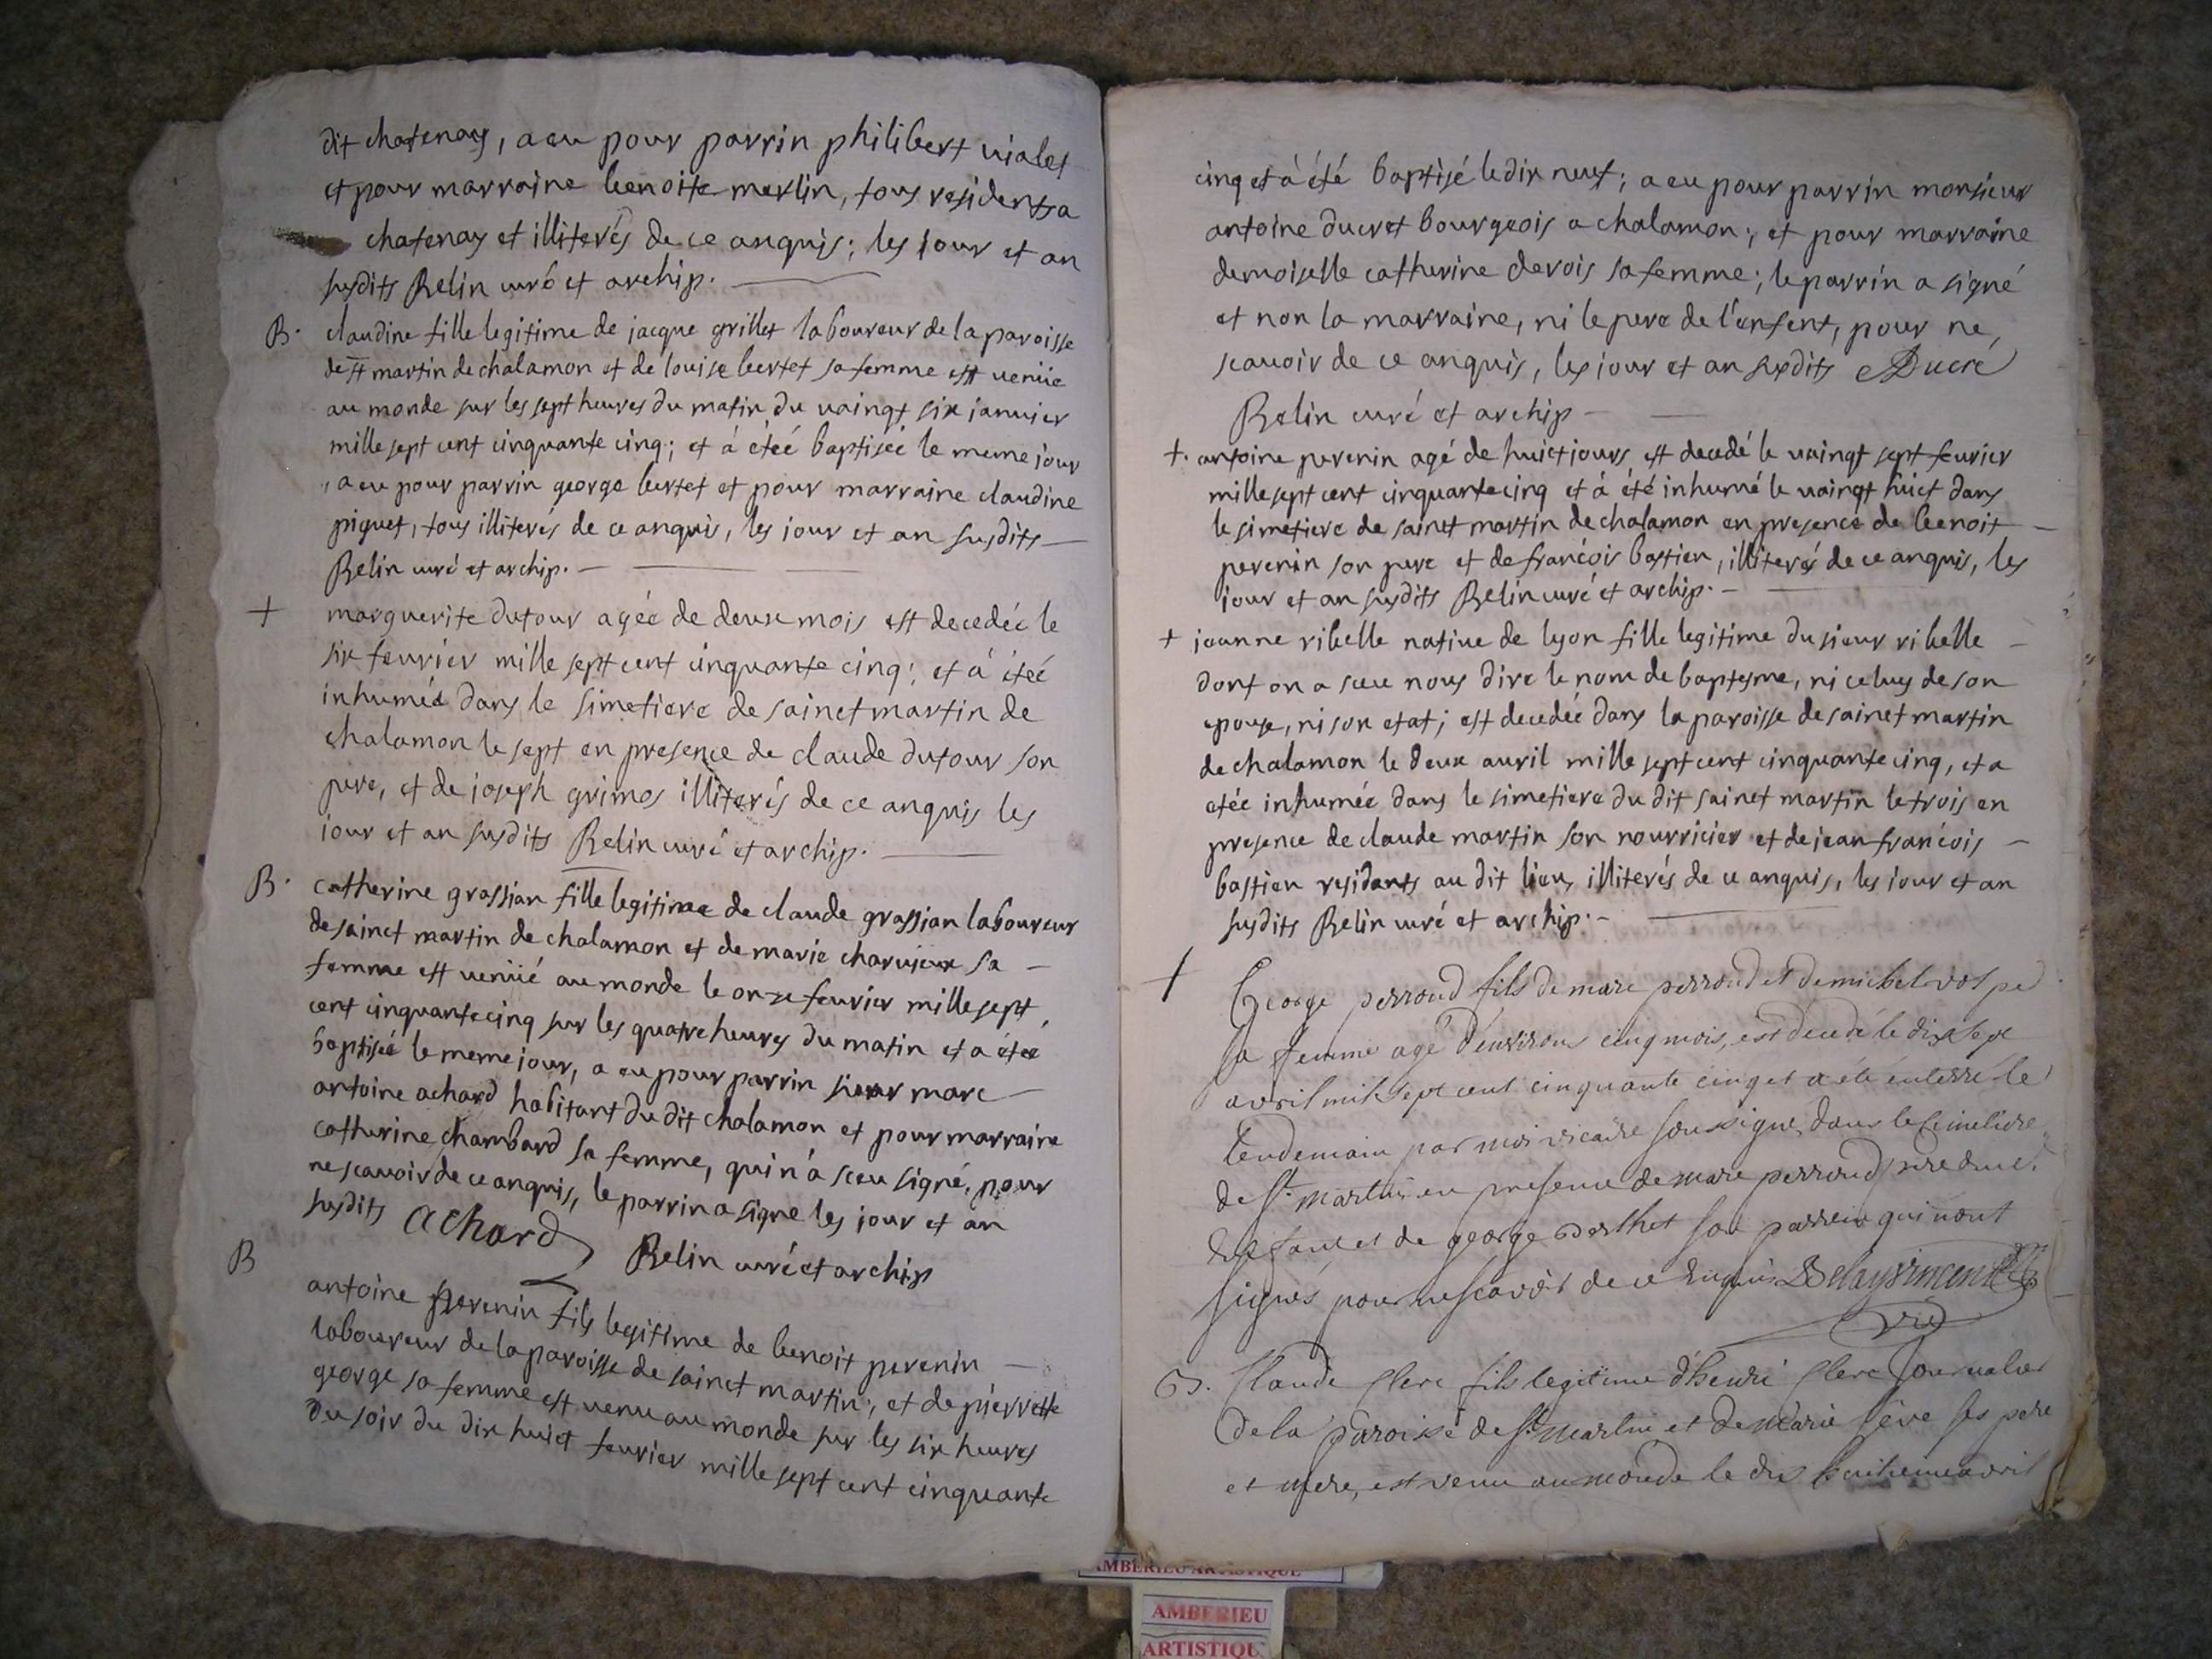 dit chatenay, a eu pour parrin philibert vialet
et pour marraine benoite merlin, tous residents a
chatenay et illiterés de ce anquis; les jour et an
susdits Relin curé et archip.
B. claudine fille legitime de jacque grillet laboureur de la paroisse
de st martin de chalamon et de louise bertet sa femme est venüe
au monde sur les sept heures du matin du vaingt six janvier
mille sept cent cinquante cinq; et á étéé baptiséé le meme jour
, a eu pour parrin george bertet et pour marraine claudine
piquet, tous illiterés de ce anquis, les jour et an susdits
Relin curé et archip.
+ marguerite dutour agéé de deux mois est decedéé le
six fevrier mille sept cent cinquante cinq; et á étéé
inhuméé dans le simetiere de sainct martin de
chalamon le sept en presence de claude dutour son
pere, et de joseph grimos illiterés de ce anquis les
jour et an susdits Relin curé et archip.
B. catherine grassian fille legitimee de claude grassian laboureur
de sainct martin de chalamon et de marie charvieux sa
femme est venüé au monde le onze fevrier mille sept
cent cinquante cinq sur les quatre heures du matin et a étéé
baptiséé le meme jour, a eu pour parrin sieur marc
antoine achard habitant du dit chalamon et pour marraine
catherine chambard sa femme, qui n'á sceu signé, pour
ne scavoir de ce anquis, le parrin a signe les jour et an
susdits Achard Relin curé et archip
B antoine perenin fils legitime de benoit perenin
laboureur de la paroisse de sainct martin; et de pierrette
george sa femme est venu au monde sur les six heures
du soir du dix huict fevrier mille sept cent cinquante
cinq et á été baptisé le dix neuf; a eu pour parrin monsieur
antoine ducret bourgeois a chalamon; et pour marraine
demoiselle catherine devois sa femme; le parrin a signé
et non la marraine, ni le pere de l'enfent, pour ne
scavoir de ce anquis, les jour et an susdits Ducre
Relin curé et archip
+. antoine perenin agé de huict jours est decedé le vaingt sept fevrier
mille sept cent cinquante cinq et á été inhumé le vaingt huict dans
le simetiere de sainct martin de chalamon en presence de benoit
perenin son pere et de francois bastien, illiterés de ce anquis, les
jour et an susdits Relin curé et archip.
+ jeanne ribelle native de lyon fille legitime du sieur ribelle
dont on a sceu nous dire le nom de baptesme, ni celuy de son
epouse, ni son etat; est decedéé dans la paroisse de sainct martin
de chalamon le deux avril mille sept cent cinquante cinq, et a
etéé inhuméé dans le simetiere du dit sainct martin le trois en
presence de claude martin son nourricier et de jean francois
bastien residants au dit lieu, illiterés de ce anquis, les jour et an
susdits Relin curé et archip.
+ George perroud fils de marc perroud et de michel
sa femme agé d'environs cinq mois, est decedé le dix sept
avril mil sept cent cinquante cinq et a été enterré le
lendemain par moi vicaire soussigné, dans le cimetiere
de St. martin en presence de marc perroud pere dud.
Enfant et de george Berthet son parrein qui n'ont
signés, pour ne scavoir de ce Enquis
vic
B. Claude Clerc fils legitime d'henri Clerc Journalier
de la paroisse de St. martin et de marie séve ses pere
et mere, est venu au monde le dix huitieme avril
AMBERIEU ARTISTIQUE
AMBERIEU
ARTISTIQU